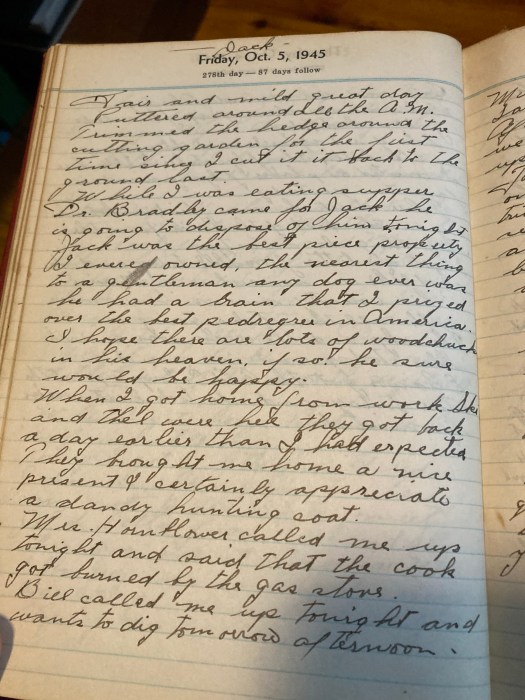 — Jack —
Friday, Oct. 5, 1945
278th day — 87 days follow
Fair and mild great day
Puttered around all the A.M.
Trimmed the hedge around the
cutting garden for the first
time since I cut it it back to the
ground last.
While I was eating supper
Dr. Bradley came for Jack he
is going to dispose of him tonight
Jack was the best piece property
I evered owned, the nearest thing
to a gentleman any dog ever was
he had a brain that I prized
over the best pedregree in America.
I hope there are lots of woodchuck
in his heaven, if so. he sure
would be happy.
When I got home from work
and were here they got back
a day earlier than I had expected
They brought me home a nice
present I certainly appreciate
a dandy hunting coat.
Mrs. Hornflower called me up
tonight and said that the cook
got burned by the gas stove.
Bill called me up tonight and
wants to dig tomorrow afternoon.